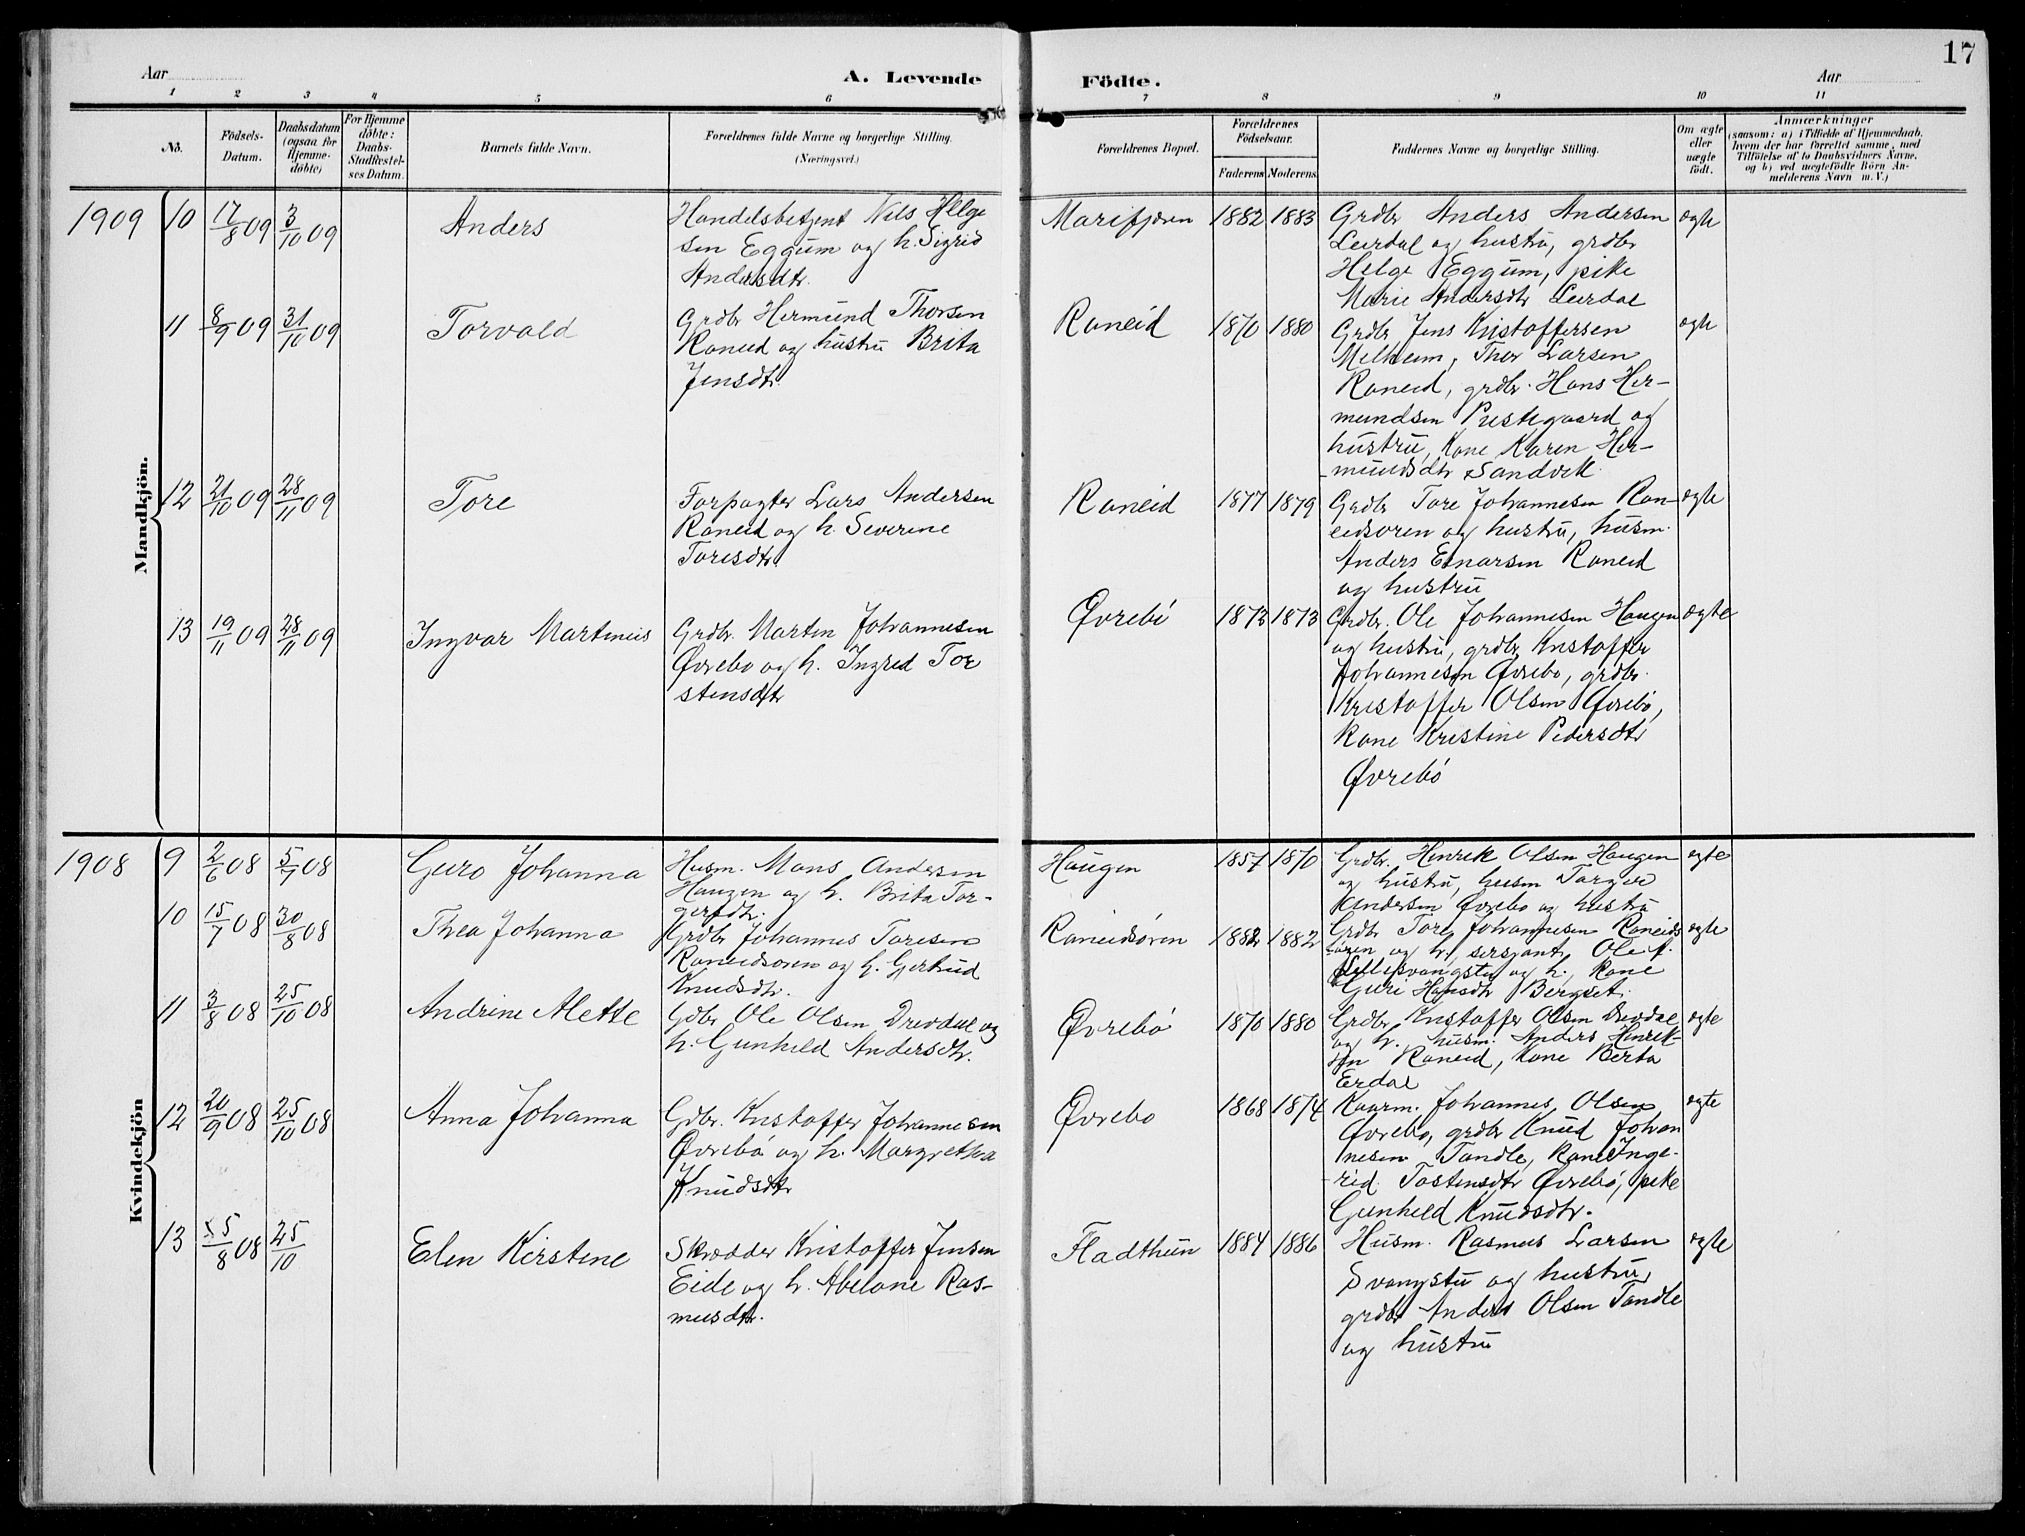 17
Aar
A. Levende
Födte.
Aar
1
2
3
4
5
6
7
8
9
10
11
No.
Födsels-
Datum.
Daabsdatum
(ogsaa for
Hjemme-
döbte)
For Hjemme
döbte:
Daabs-
Stadfæstel-
ses Datum.
Barnets fulde Navn.
Forældrenes fulde Navne og borgerlige Stilling.
(Næringsvei.)
Forældrenes Bopæl.
Forældrenes
Födselsaar.
Faderens
Moderens
Faddernes Navne og borgerlige Stilling.
Om ægte
eller
uægte
födt.
Anmærkninger
(saasom: a) i Tilfælde af Hjemmedaab,
hvem der har forrettet samme, med
Tilföielse af to Daabsvidners Navne,
og b) ved uægtefödte Börn An-
melderens Navn m. V.)
Mandkjön.
1909
10
17/8 09
3/10 09
Anders
Handelsbetjent Nils Helge
sen Eggum og h. Sigrid
Andersdtr.
Marifjæren
1882
1883
Grdbr Anders Andersen
Leirdal og hustru, grdbr
Helge Eggum, pike
Marie Andersdtr Leirdal
ægte
11
8/9 09
31/10 09
Torvald
Grdbr Hermund Thorsen
Raneid og hustru Brita
Jensdtr.
Raneid
1870
1880
Grdbr Jens Kristoffersen
Melheim, Thor Larsen
Raneid, grdbr. Hans Her-
mundsen Prestegaard og
hustru, Kone Karen Her-
mundsdtr Sandvik.
ægte
12
21/10 09
28/11 09
Tore
Forpagter Lars Andersen
Raneid og h. Severine
Toresdtr.
Raneid
1877
1879
Grdbr Tore Johannesen Ran-
eidsøren og hustru, husm.
Anders Einarsen Raneid
og hustru
ægte
13
19/11 09
28/11 09
Ingvar Martinus
Grdbr. Martin Johannesen
Øvrebø og h. Ingrid Tor
stensdtr
Øvrebö
1873
1873
Grdbr. Ole Johannesen Haugen
og hustru, grdbr Kristoffer
Johannesen Øvrebø, grdbr.
Kristoffer Olsen Øvrebö,
Kone Kristine Pedersdtr
Øvrebö
ægte
Kvindekjön
1908
9
2/6 08
5/7 08
Guro Johanna
Husm. Mons Andersen
Haugen og h. Brita Tor-
gersdtr.
Haugen
1857
1870
Grdbr. Henrik Olsen Haugen
og hustru, husm Torger
Andersen Øvrebø og hustru
ægte
10
15/7 08
30/8 08
Thea Johanna
Grdbr Johannes Toresen
Raneidsøren og h. Gertrud
Knudsdtr.
Raneidsøren
1882
1882
Grdbr Tore Johannesen Raneids
øren og h, sersjant Ole
og h., Kone
Guri Hansdtr Bergset.
ægte
11
3/8 08
25/10 08
Andrine Mette
Gdbr Ole Olsen Drevdal og
h. Gunhild Andersdtr.
Øvrebø
1870
1880
Grdbr Kristoffer Olsen Drevdal
og h., husm. Anders Henrik-
sen Raneid, Kone Berta
Erdal
ægte
12
20/9 08
25/10 08
Anna Johanna
Gdbr. Kristoffer Johannesen
Øvrebö og h. Margretha
Knudsdtr
Øvrebo
1868
1874
Kaarm. Johannes Olsen
Øvrebø, grdbr Knud Johan
nesen Tandle, Kone Inge-
rid Tostensdtr Øvrebö, pike
Gunhild Knudsdtr.
ægte
13
25/8 08
25/10
Elen Kirstine
Skrædder Kristoffer Jensen
Eide og h. Abelone Ras-
musdtr.
Fladthun
1884
1886
Husm. Rasmus Larsen
Svangstu og hustru,
grdbr Anders Olsen Tandle
og hustru
ægte